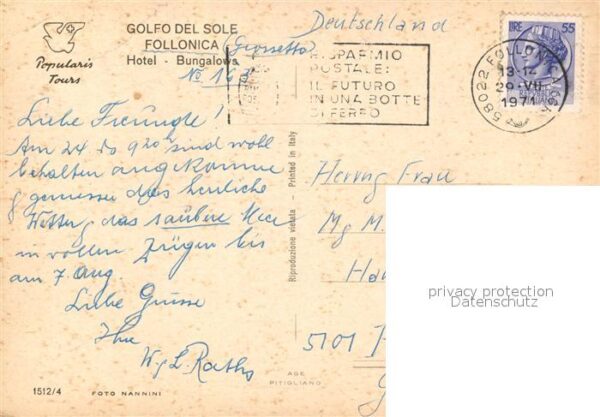 Deutschland
GOLFO DEL SOLE
FOLLONICA (Grosseto)
Hotel - Bungalows
No 163
Popularis
Tours
RISPARMIO
POSTALE:
IL FUTURO
IN UNA BOTTE
DI FERRO
58022 FOLLONICA
13-14
29-VII
1971
LIRE 55
Liebe Freunde!
Am 24 do 9 20 sind wohl
behalten angekommen
genießen das herrliche
Wetter, das saubere Meer
in vollen Zügen bis
am 7. Aug
Liebe Grüsse
Ihre
W. & L. Raths
Riproduzione vietata - Printed in Italy
Herrn Frau
Mg M.
Ha
5101
privacy protection
Datenschutz
AGE
PITIGLIANO
1512/4 FOTO NANNINI